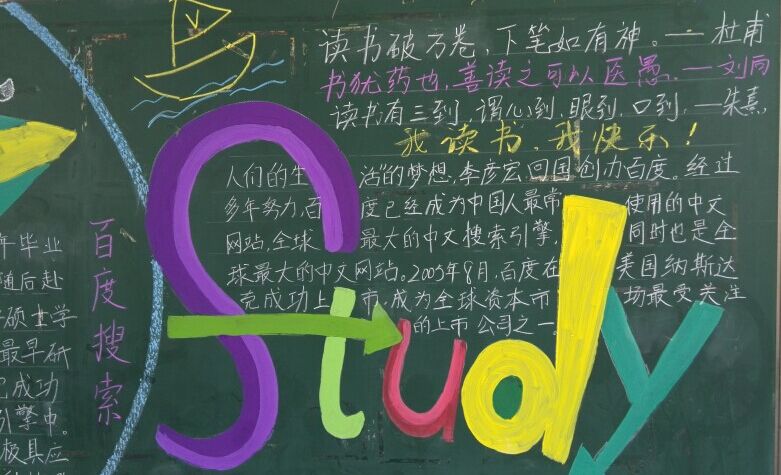 读书破万卷，下笔如有神。——杜甫
书犹药也，善读之可以医愚。——刘向
读书有三到，谓心到，眼到，口到，——朱熹
我读书，我快乐！
人们的生活"的梦想，李彦宏回国创办百度。经过
多年努力，百度已经成为中国人最常使用的中文
网站，全球最大的中文搜索引擎，同时也是全
球最大的中文网站。2005年8月，百度在美国纳斯达
克成功上市，成为全球资本市场最受关注
的上市公司之一。
Study
百度搜索
年毕业
随后赴
硕士学
最早研
成功
引擎中。
极具应